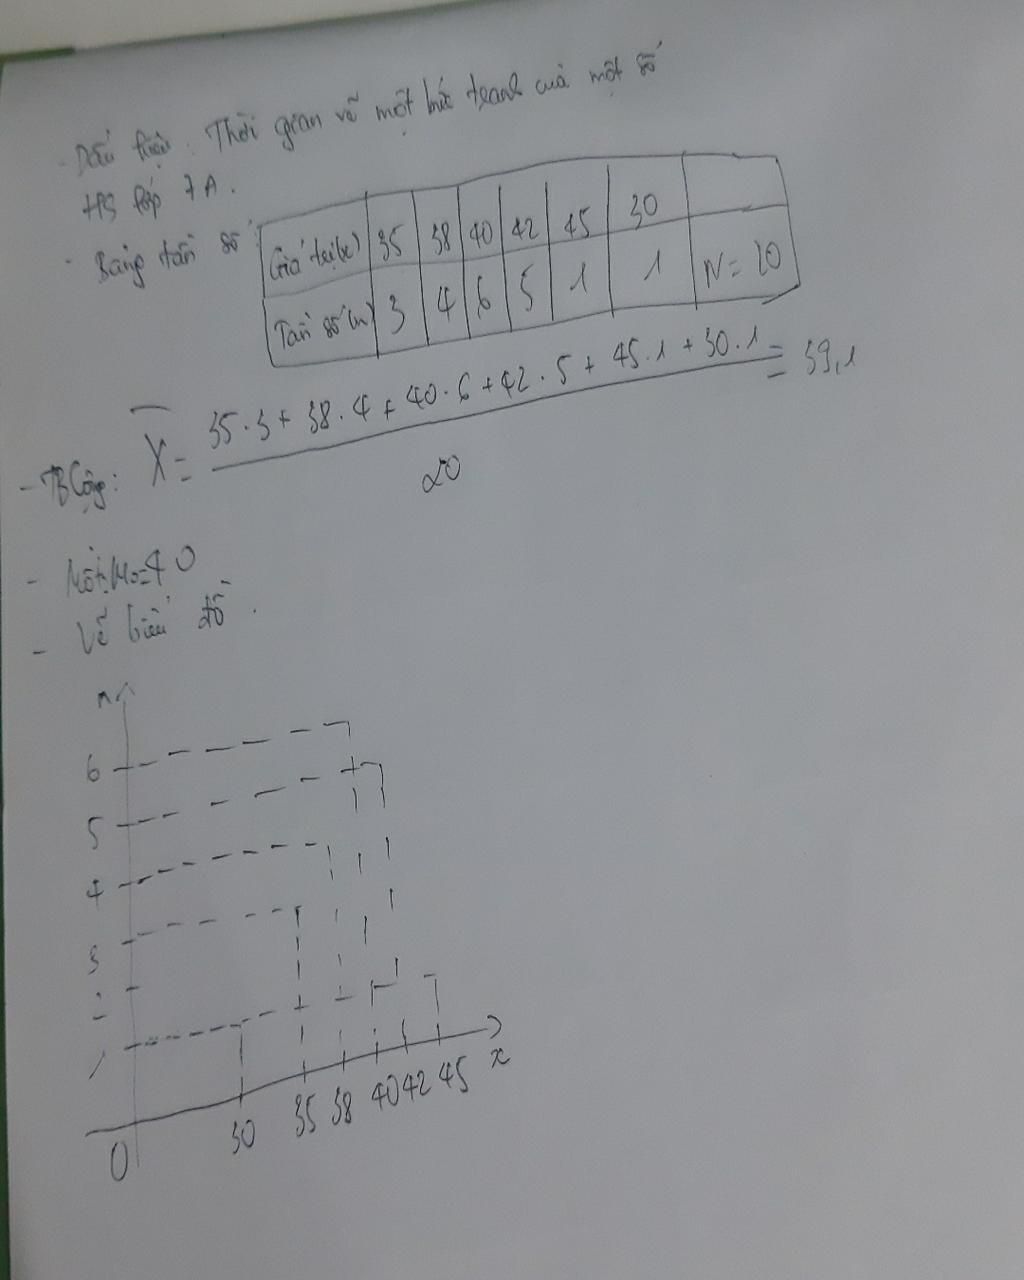 - Dấu hiệu: Thời gian vẽ một bức tranh của một số
HS lớp 7A.
- Bảng tần số:
Giá trị(x) 35 38 40 42 45 30
Tần số(n) 3 4 6 5 1 1 N = 20
- TB Cộng: X = 35.3 + 38.4 + 40.6 + 42.5 + 45.1 + 30.1 = 39,1
20
- Mốt: Mo = 40
- Vẽ biểu đồ.
n
6
5
4
3
2
1
0 30 35 38 40 42 45 x